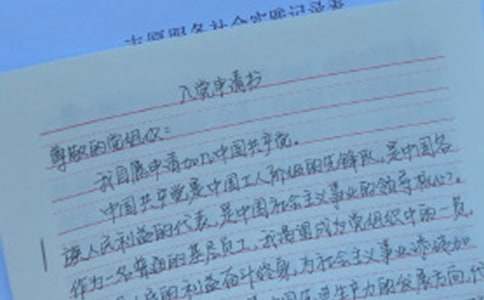 志愿服务社会实践记录表
入党申请书
尊敬的党组织:
我自愿申请加入中国共产党。
中国共产党是中国工人阶级的先锋队,是中国各
族人民利益的代表,是中国社会主义事业的领导核心。
作为一名普通的基层员工,我渴望成为党组织中的一员,
的利益奋斗终身,为社会主义事业添砖加
生产力的发展方向,代